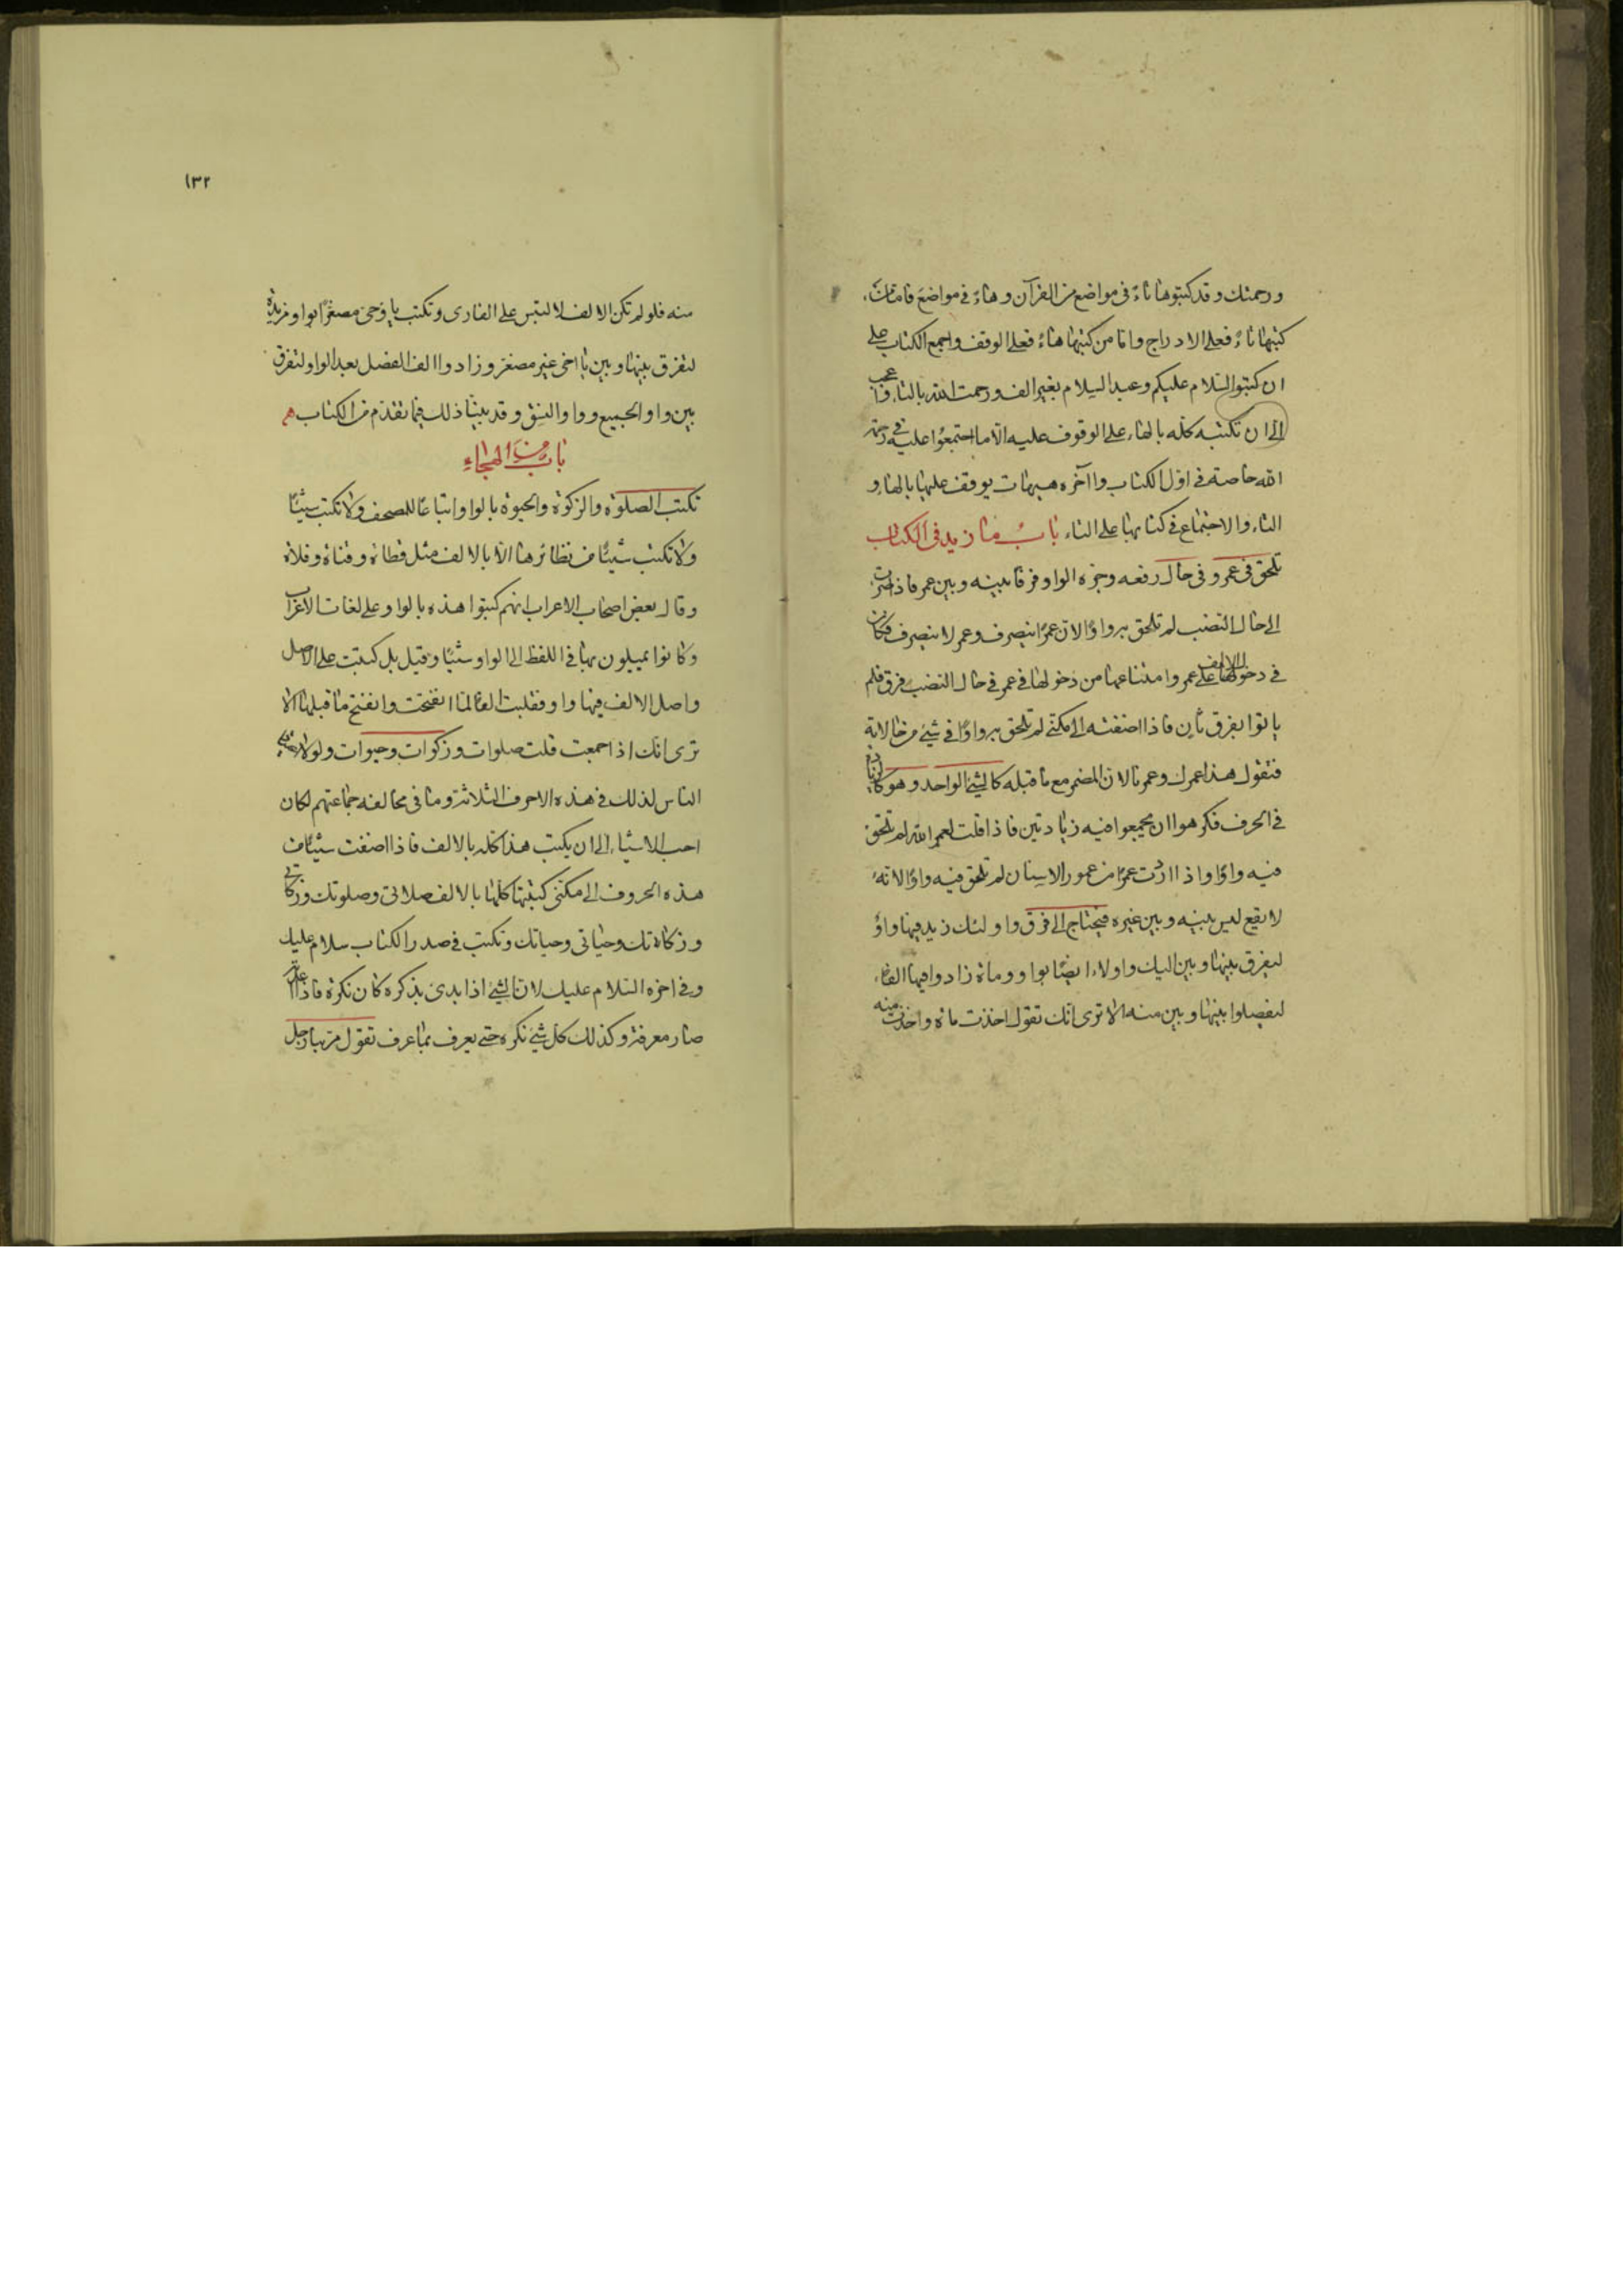 ورحمتك وقد كتبوها تاءً فى مواضع من القرآن وهاءً فى مواضع فاما من
كتبها تاءً فعلى الادراج واما من كتبها هاءً فعلى الوقف واجمع الكتاب على
ان كتبوا السلام عليكم وعبد السلام بغير الف ورحمت الله بالتاء واعجب
الى ان تكتبه كله بالهاء على الوقوف عليه الا ما اجتمعوا عليه فى رحمة
الله خاصة فى اول الكتاب وآخره هيهات يوقف عليها بالهاء و
التاء والاجتماع فى كتابها على التاء باب ما زيد فى الكتاب
تلحق فى عمرو فى حال رفعه وجره الواو فرقا بينه وبين عمر فاذا صرت
الى حال النصب لم تلحق به واوًا لان عمرًا ينصرف وعمر لا ينصرف فكان
فى دخول الالف على عمرو وامتناعها من دخولها فى عمر فى حال النصب فرق فلم
ياتوا بفرق ثان فاذا اضفته الى مكنى لم تلحق به واوًا فى شئ من حالاته
فتقول هذا عمرك وعمرنا لان المضمر مع ما قبله كالشئ الواحد وهو كالزيادة
فى الحرف فكرهوا ان يجمعوا فيه زيادتين فاذا قلت لعمر الله لم تلحق
فيه واوًا واذا اردت عمرًا من عمور الاسنان لم تلحق فيه واوًا لانه
لا يقع لبس بينه وبين غيره فيحتاج الى فرق واولئك زيد فيها واوٌ
ليفرق بينها وبين اليك واولاء ايضًا بواو ومائة زادوا فيها الفا
ليفصلوا بينها وبين منه الا ترى انك تقول اخذت مائة واخذت منه
١٣٢
منه فلو لم تكن الالف لالتبس على القارى وتكتب يا وخى مصغرًا بواو مزيدة
لتفرق بينها وبين يا اخى غير مصغر وزادوا الف الفصل بعد الواو لتفرق
بين واو الجميع وواو النسق وقد بينا ذلك فيما تقدم من الكتاب
باب من الهجاء
تكتب الصلوة والزكوة والحيوة بالواو اتباعًا للمصحف ولا تكتب شيئًا
ولا تكتب شيئًا من نظائرها الا بالالف مثل قطاة وقناة وفلاة
وقال بعض اصحاب الاعراب انهم كتبوا هذه بالواو على لغات الاعراب
وكانوا يميلون بها فى اللفظ الى الواو شيئًا وقيل بل كتبت على الاصل
واصل الالف فيها واو فقلبت الفًا لما انفتحت وانفتح ما قبلها الا
ترى انك اذا جمعت قلت صلوات وزكوات وحيوات ولولا
الناس لذلك فى هذه الاحرف الثلاثة وما فى مخالفة جماعتهم لكان
احب الاشياء الى ان يكتب هذا كله بالالف فاذا اضفت شيئًا من
هذه الحروف الى مكنى كتبتها كلها بالالف صلاتى وصلوتك وزكاتى
وزكاتك وحياتى وحياتك وتكتب فى صدر الكتاب سلام عليك
وفى اخره السلام عليك لان الشئ اذا بدئ بذكره كان نكرة فاذا اعدته
صار معرفة وكذلك كل شئ نكرة حتى يعرف بما عرف تقول مر بنا رجل